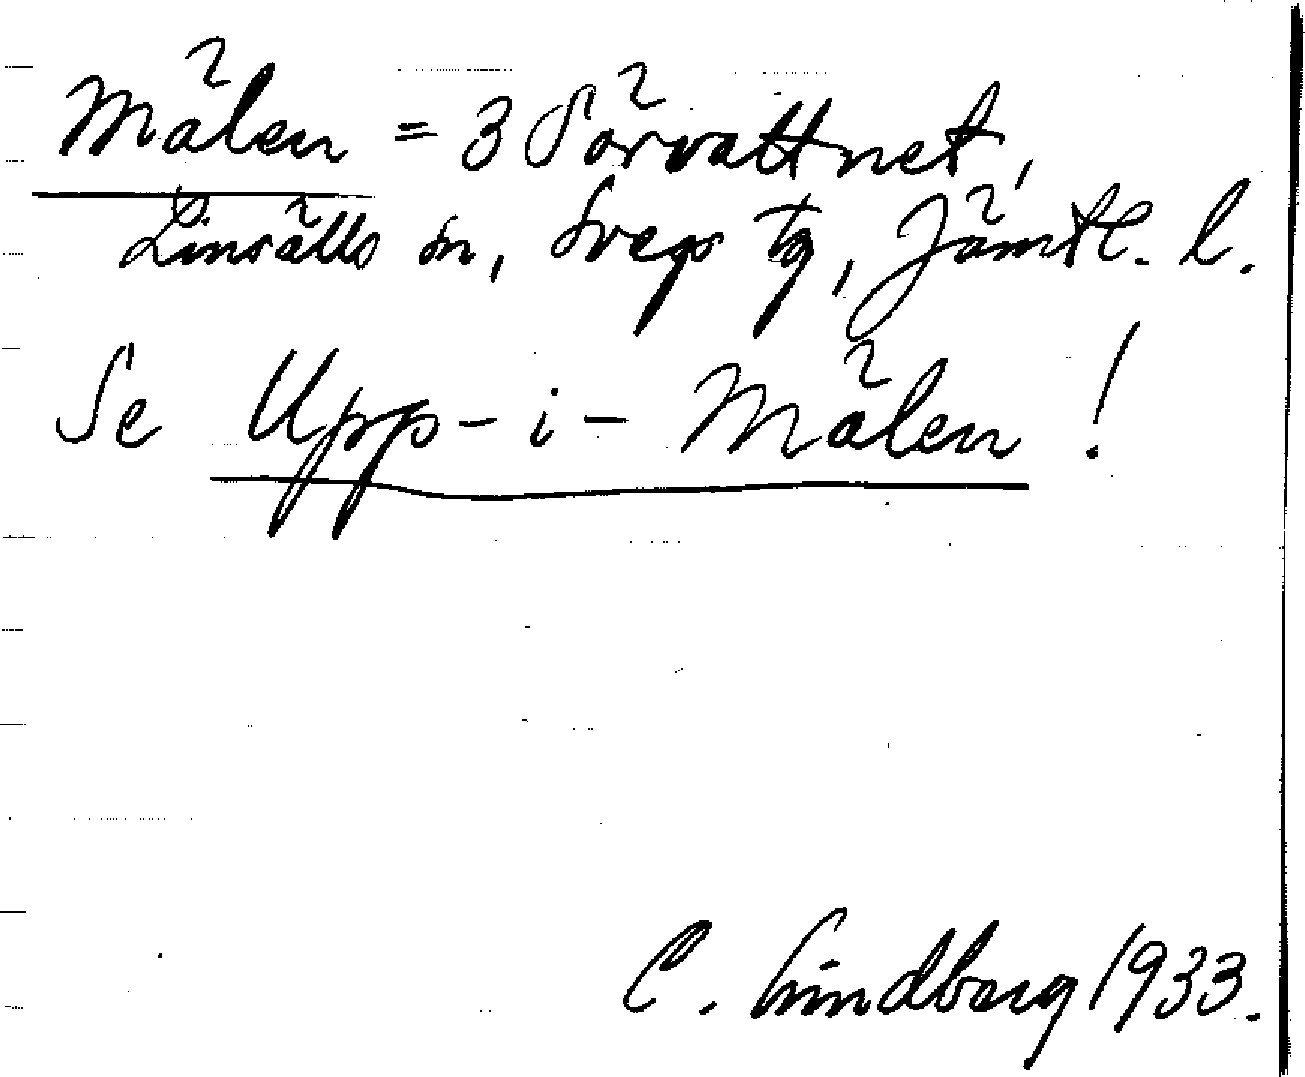 Mälen = 3 Sörvattnet,
Linsälls sn, Svegs tg, Jämtl. l.
Se Upp-i-Mälen!
C. Sundberg 1933.